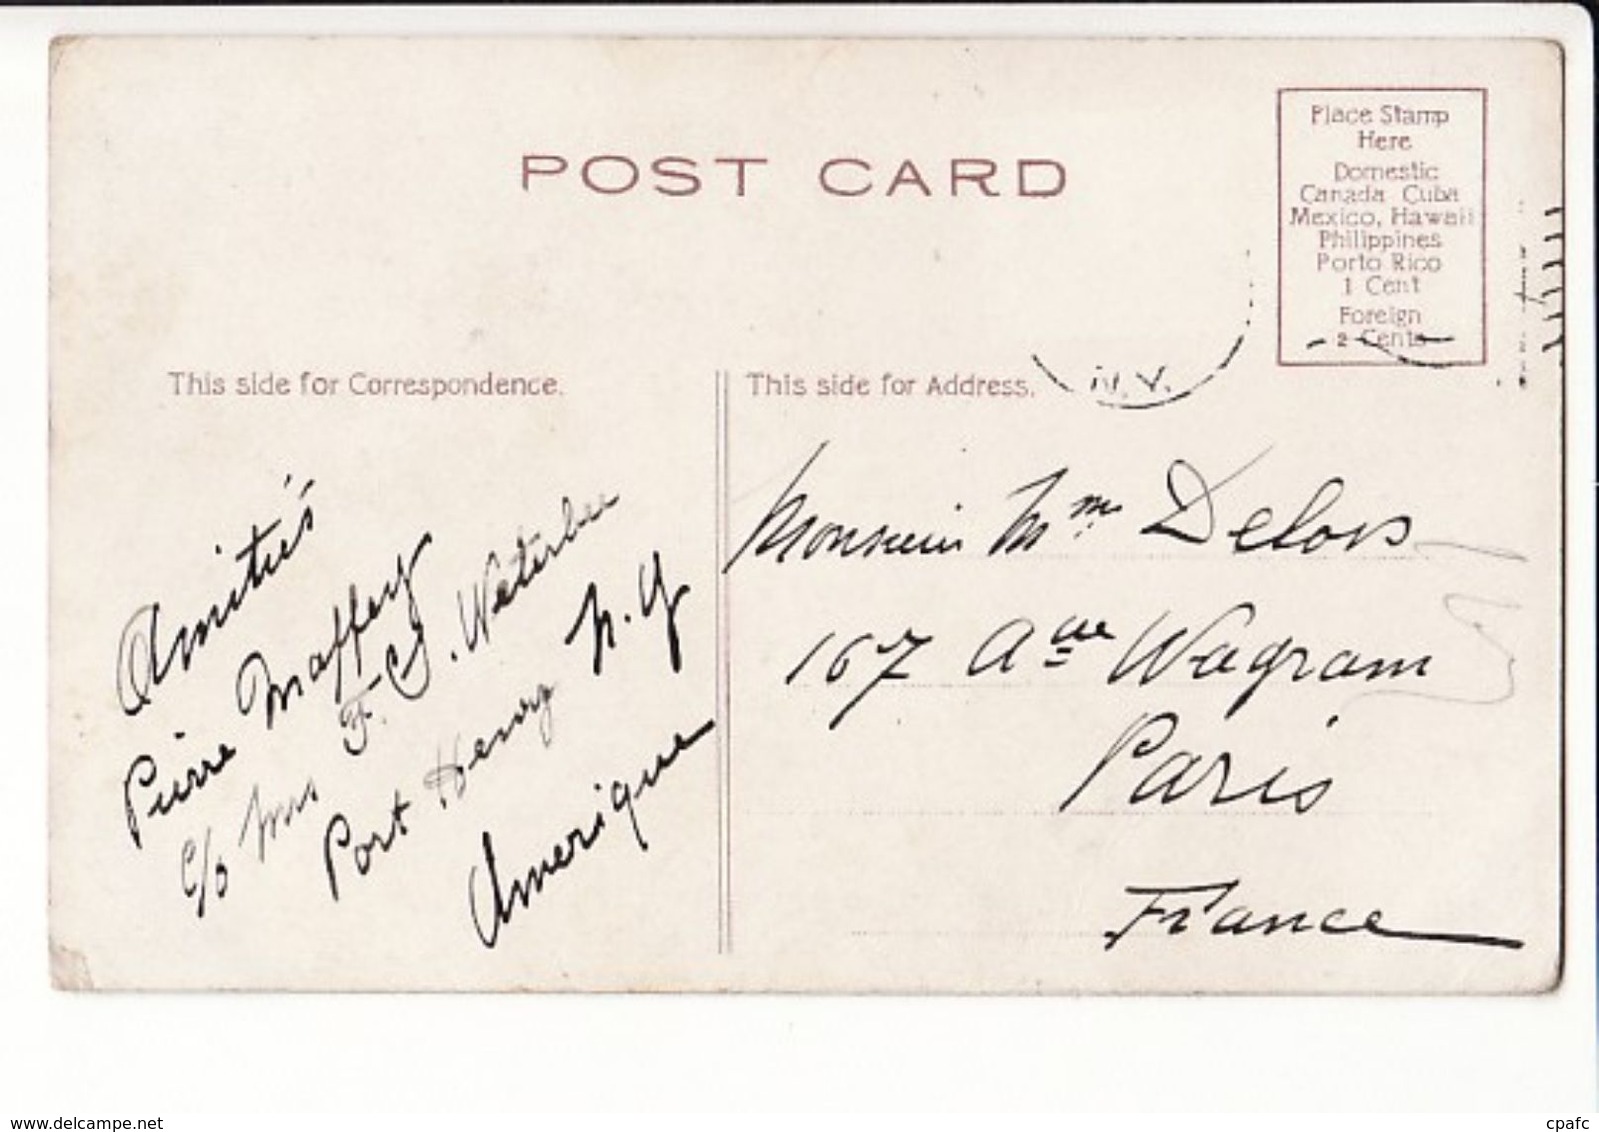 POST CARD
Place Stamp
Here
Domestic
Canada Cuba
Mexico, Hawaii
Philippines
Porto Rico
1 Cent
Foreign
2 Cents
N.Y.
This side for Correspondence.
This side for Address.
Amitiés
Pierre Maffey
c/o Mrs F. C. Waterbee
Port Henry N.Y
Amerique
Monsieur Mme Delors
167 Aue Wagram
Paris
France
www.delcampe.net
cpafc